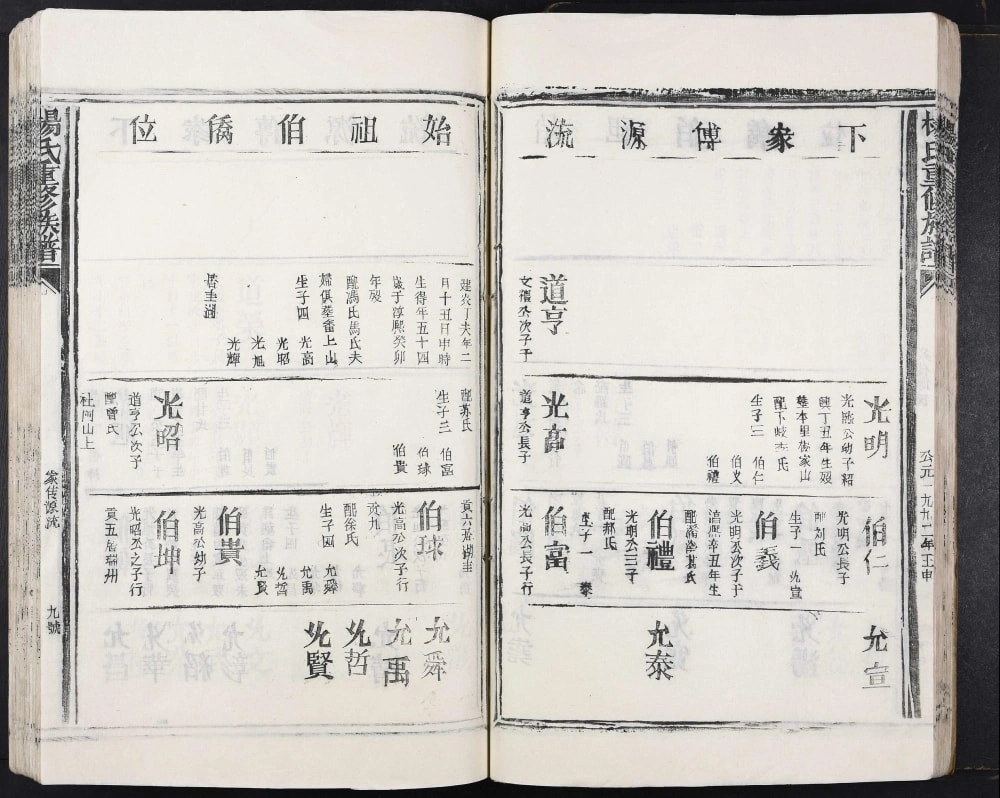 楊氏重修族譜
公元一九九二年壬申
下家傳源流
道亨
文禮公次子于
光明
光融公幼子紹
興丁丑年生歿
葬本里楊家山
配下岐李氏
生子三
伯仁
伯义
伯禮
光高
道亨公長子
伯仁
光明公長子
配刘氏
生子一
允宣
伯義
光明公次子于
淳熙辛丑年生
伯禮
光明公三子
配郝氏
生子一
泰
伯富
光高公長子行
允宣
允泰
始祖伯僑位
建炎丁未年二
月十五日申時
生得年五十四
歲于淳熙癸卯
年殁
配馮氏馬氏夫
婦俱葬畬上山
生子四
光高
光昭
光旭
光輝
配蘇氏
生子三
伯富
伯球
伯貴
光昭
道亨公次子
配曾氏
社阿山上
伯球
光高公次子行
貢九
配徐氏
生子四
允舜
允禹
允哲
允賢
伯貴
光高公幼子
伯坤
光昭公之子行
貢五居瑞州
允舜
允禹
允哲
允賢
楊氏重修族譜
家传源流
九號